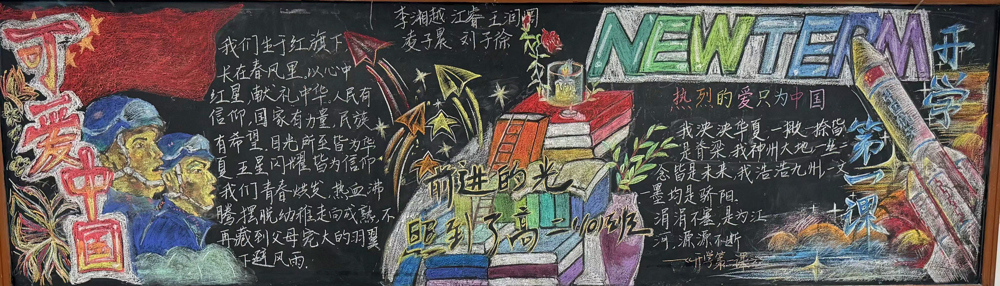 可爱中国
我们生于红旗下
长在春风里,以心中
红星,献礼中华.人民有
信仰,国家有力量,民族
有希望.目光所至皆为华
夏,五星闪耀皆为信仰.
我们青春焕发,热血沸
腾.摆脱幼稚走向成熟.不
再藏到父母宽大的羽翼
下避风雨.
李湘越 江睿 王润
凌子晨 刘子徐
前进的光
照到了高二401班
NEW TERM
热烈的爱只为中国
我泱泱华夏,一撇一捺皆
是脊梁.我神州大地,一丝一
念皆是未来.我浩浩九州,一文一
墨均是骄阳.
涓涓不塞,是为江
河.源源不断
《开学第一课》
开学
第一课